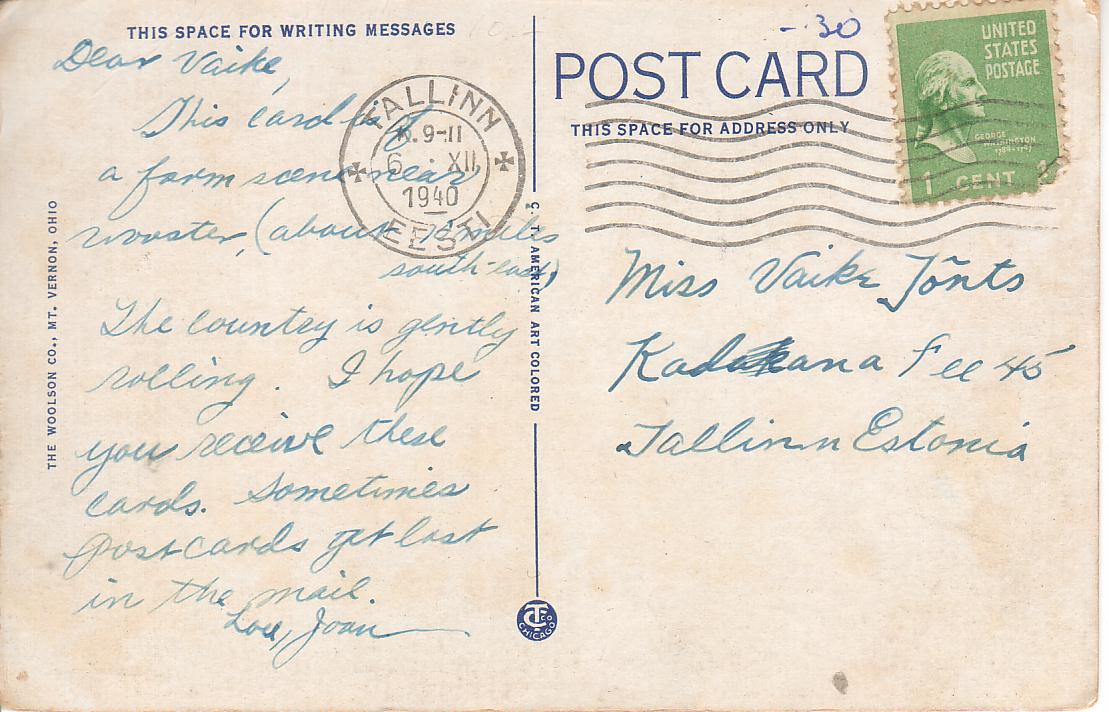 THIS SPACE FOR WRITING MESSAGES
Dear Vaike,
This card is of
a farm scene near
wooster, (about miles
south-east)
The country is gently
rolling. I hope
you receive these
cards. Sometimes
postcards get lost
in the mail.
Love, Joan
THE WOOLSON CO., MT. VERNON, OHIO
C. T. AMERICAN ART COLORED
CHICAGO
TALLINN
9-11
6 · XII
1940
EESTI
-30
POST CARD
THIS SPACE FOR ADDRESS ONLY
UNITED
STATES
POSTAGE
GEORGE
WASHINGTON
1789-1797
1 CENT 1
Miss Vaike Tõnts
Tee 45
Tallinn Estonia